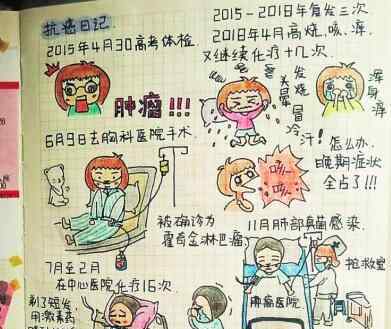 抗癌日记.
2015年4月30高考体检
肿瘤!!!
6月9日去胸科医院手术
被确诊为
霍奇金淋巴瘤
7月至2月
在中心医院化疗16次
剃了短发,
用激素药
2015-2018年复发三次
2018年4月高烧、咳、浑
又继续化疗十几次
发烧
头晕
冒冷汗!
浑身痛
怎么办.
晚期症状
全占了!!!
咳~
咳~
11月肺部真菌感染.
抢救室
肿瘤医院